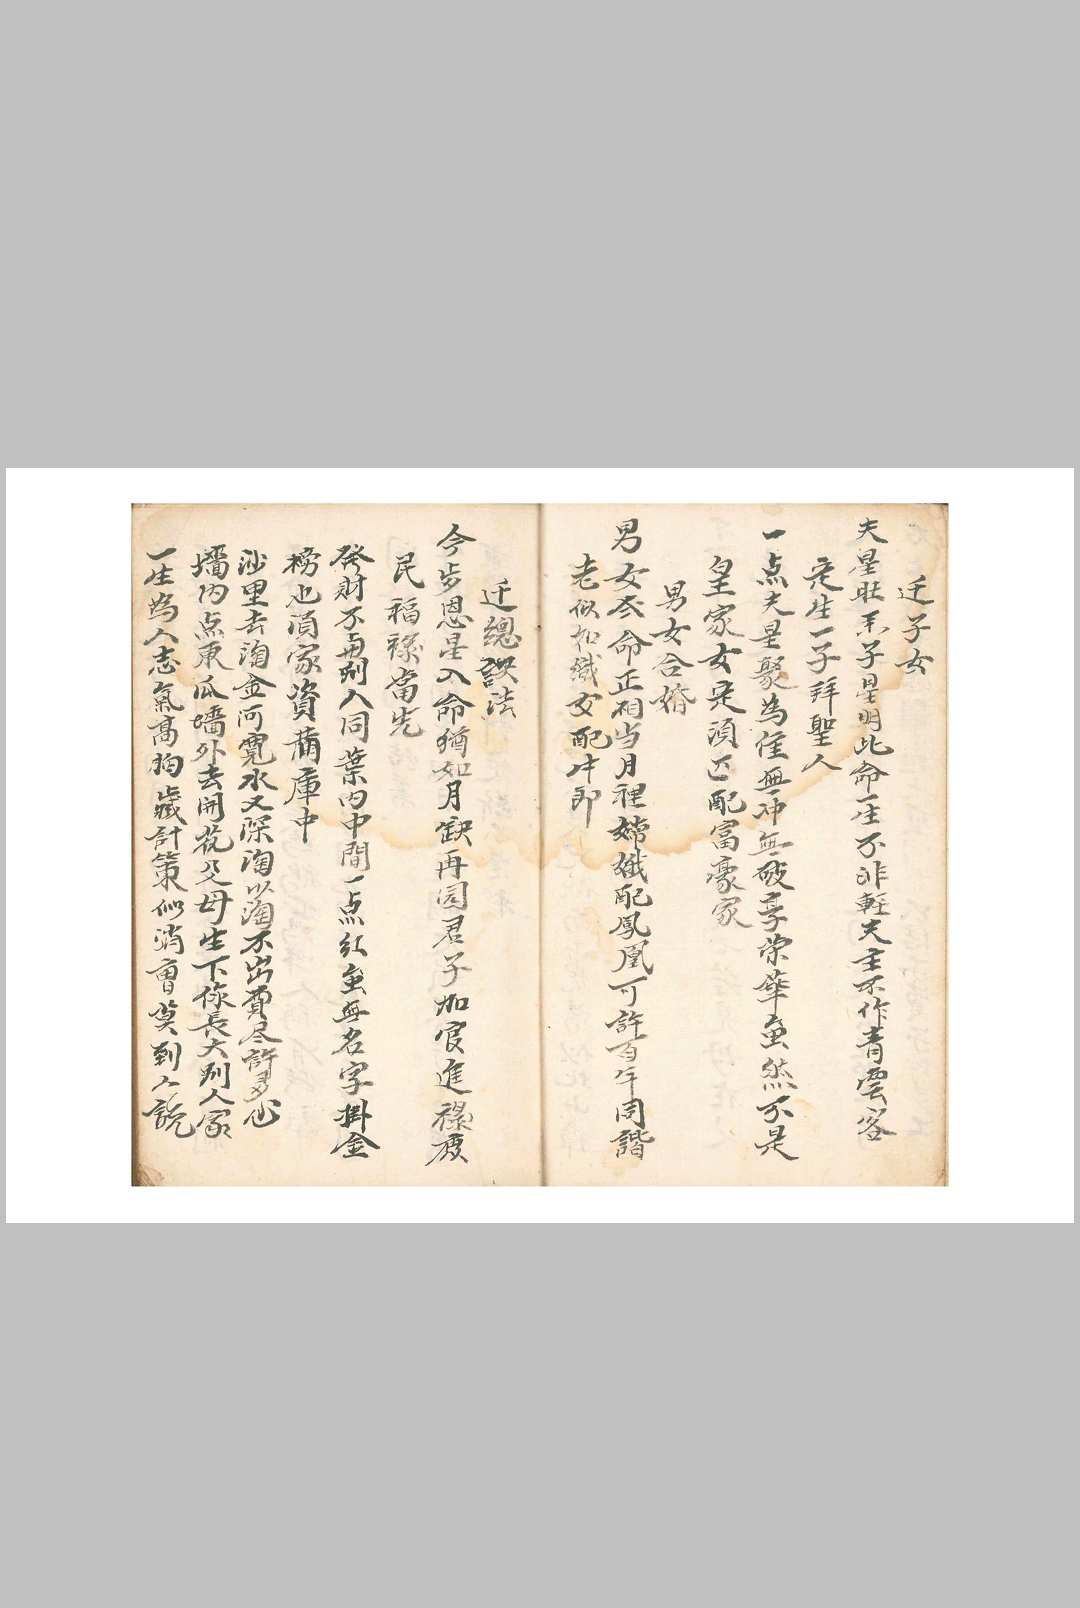 迁子女
夫星旺系子星明此命一生不非軽夫主不作青雲客
定生一子拜聖人
一点夫星聚為佳無冲無破享荣華虽然不是
皇家女定須匹配富豪家
男女合婚
男女合命正相当月裡嫦孅配鳳凰可許百年同諧
老似如織女配牛郎
迁總訣法
今步恩星入命猶如月缺再圆君子加官進祿庶
民福祿當先
發財不再别人同葉内中間一点红虽無名字掛金
榜也須家資滿庫中
沙里去淘金河寬水又深淘以淘不出費尽許多心
墻内点東瓜墻外去開花父母生下你長大别人家
一生為人志氣高胸藏計策似消曹莫到人說